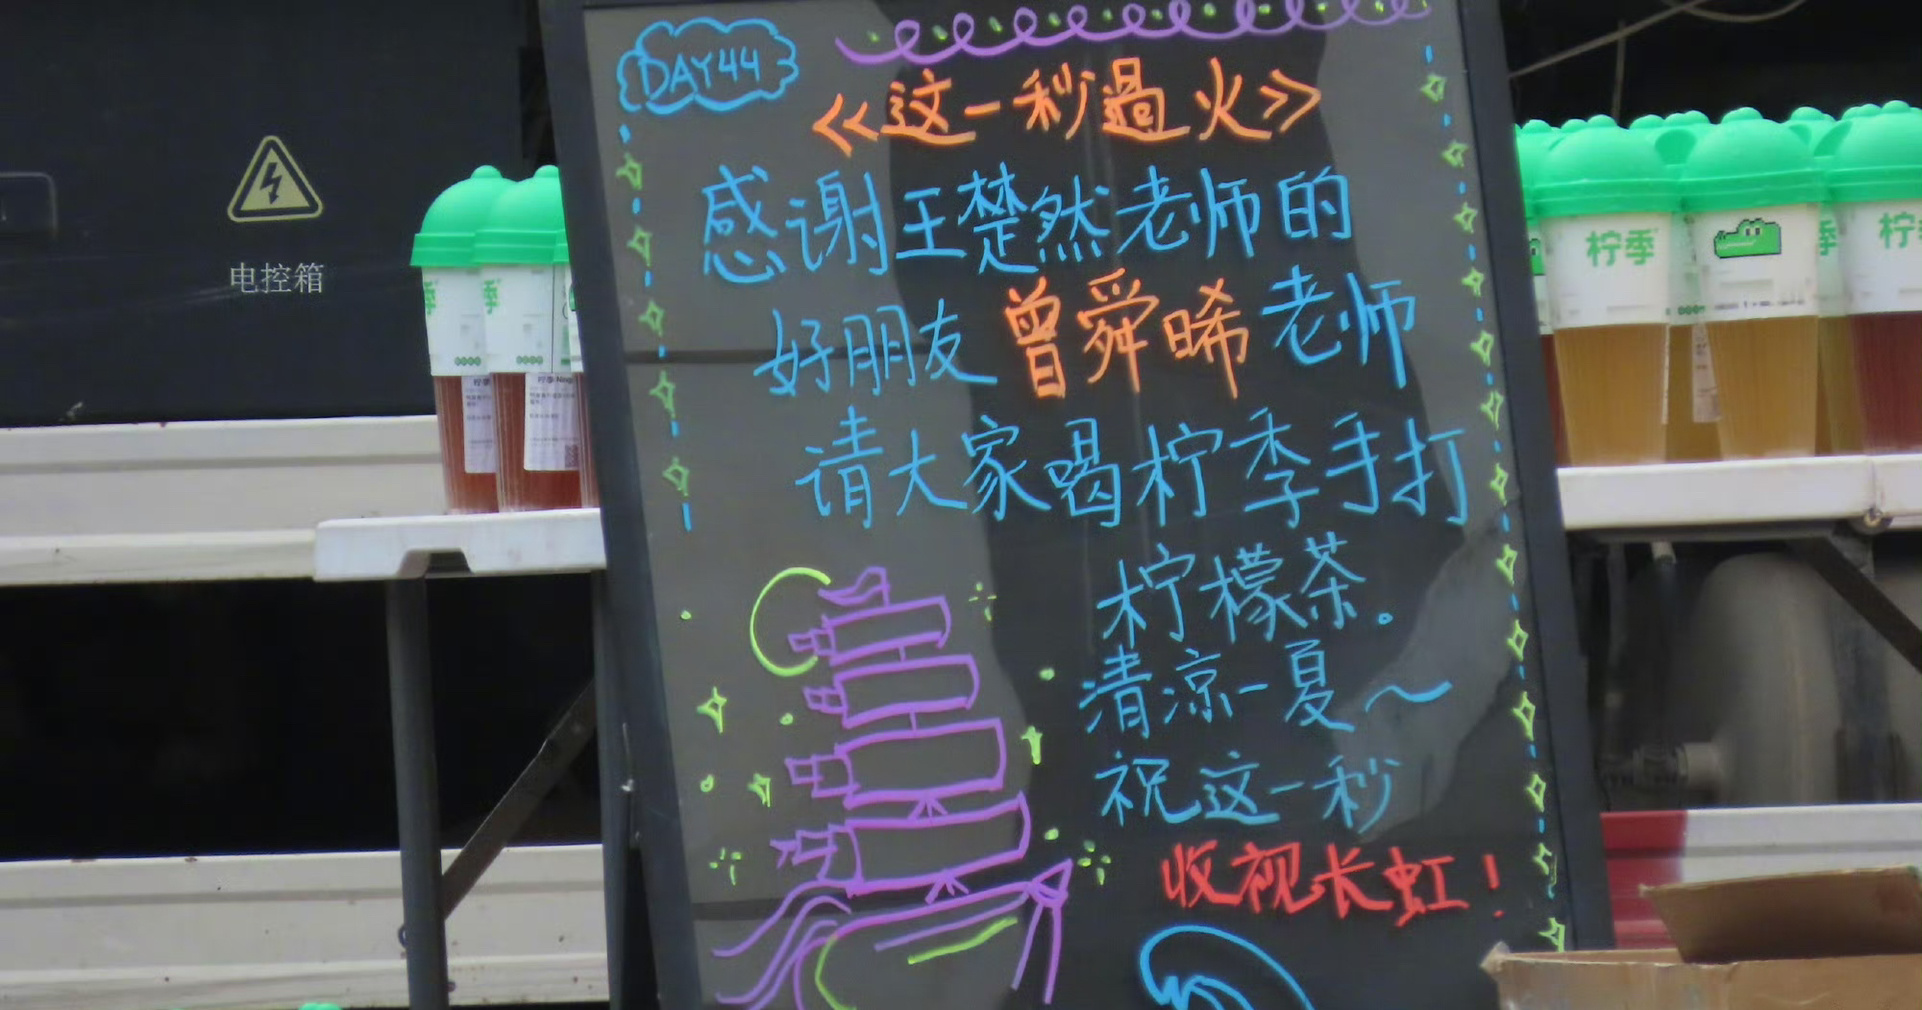 DAY44
《这一秒過火》
感谢王楚然老师的
好朋友曾舜晞老师
请大家喝柠季手打
柠檬茶。
清凉一夏～
祝这一秒
收视长虹！
电控箱
季
季
柠季
季
柠季